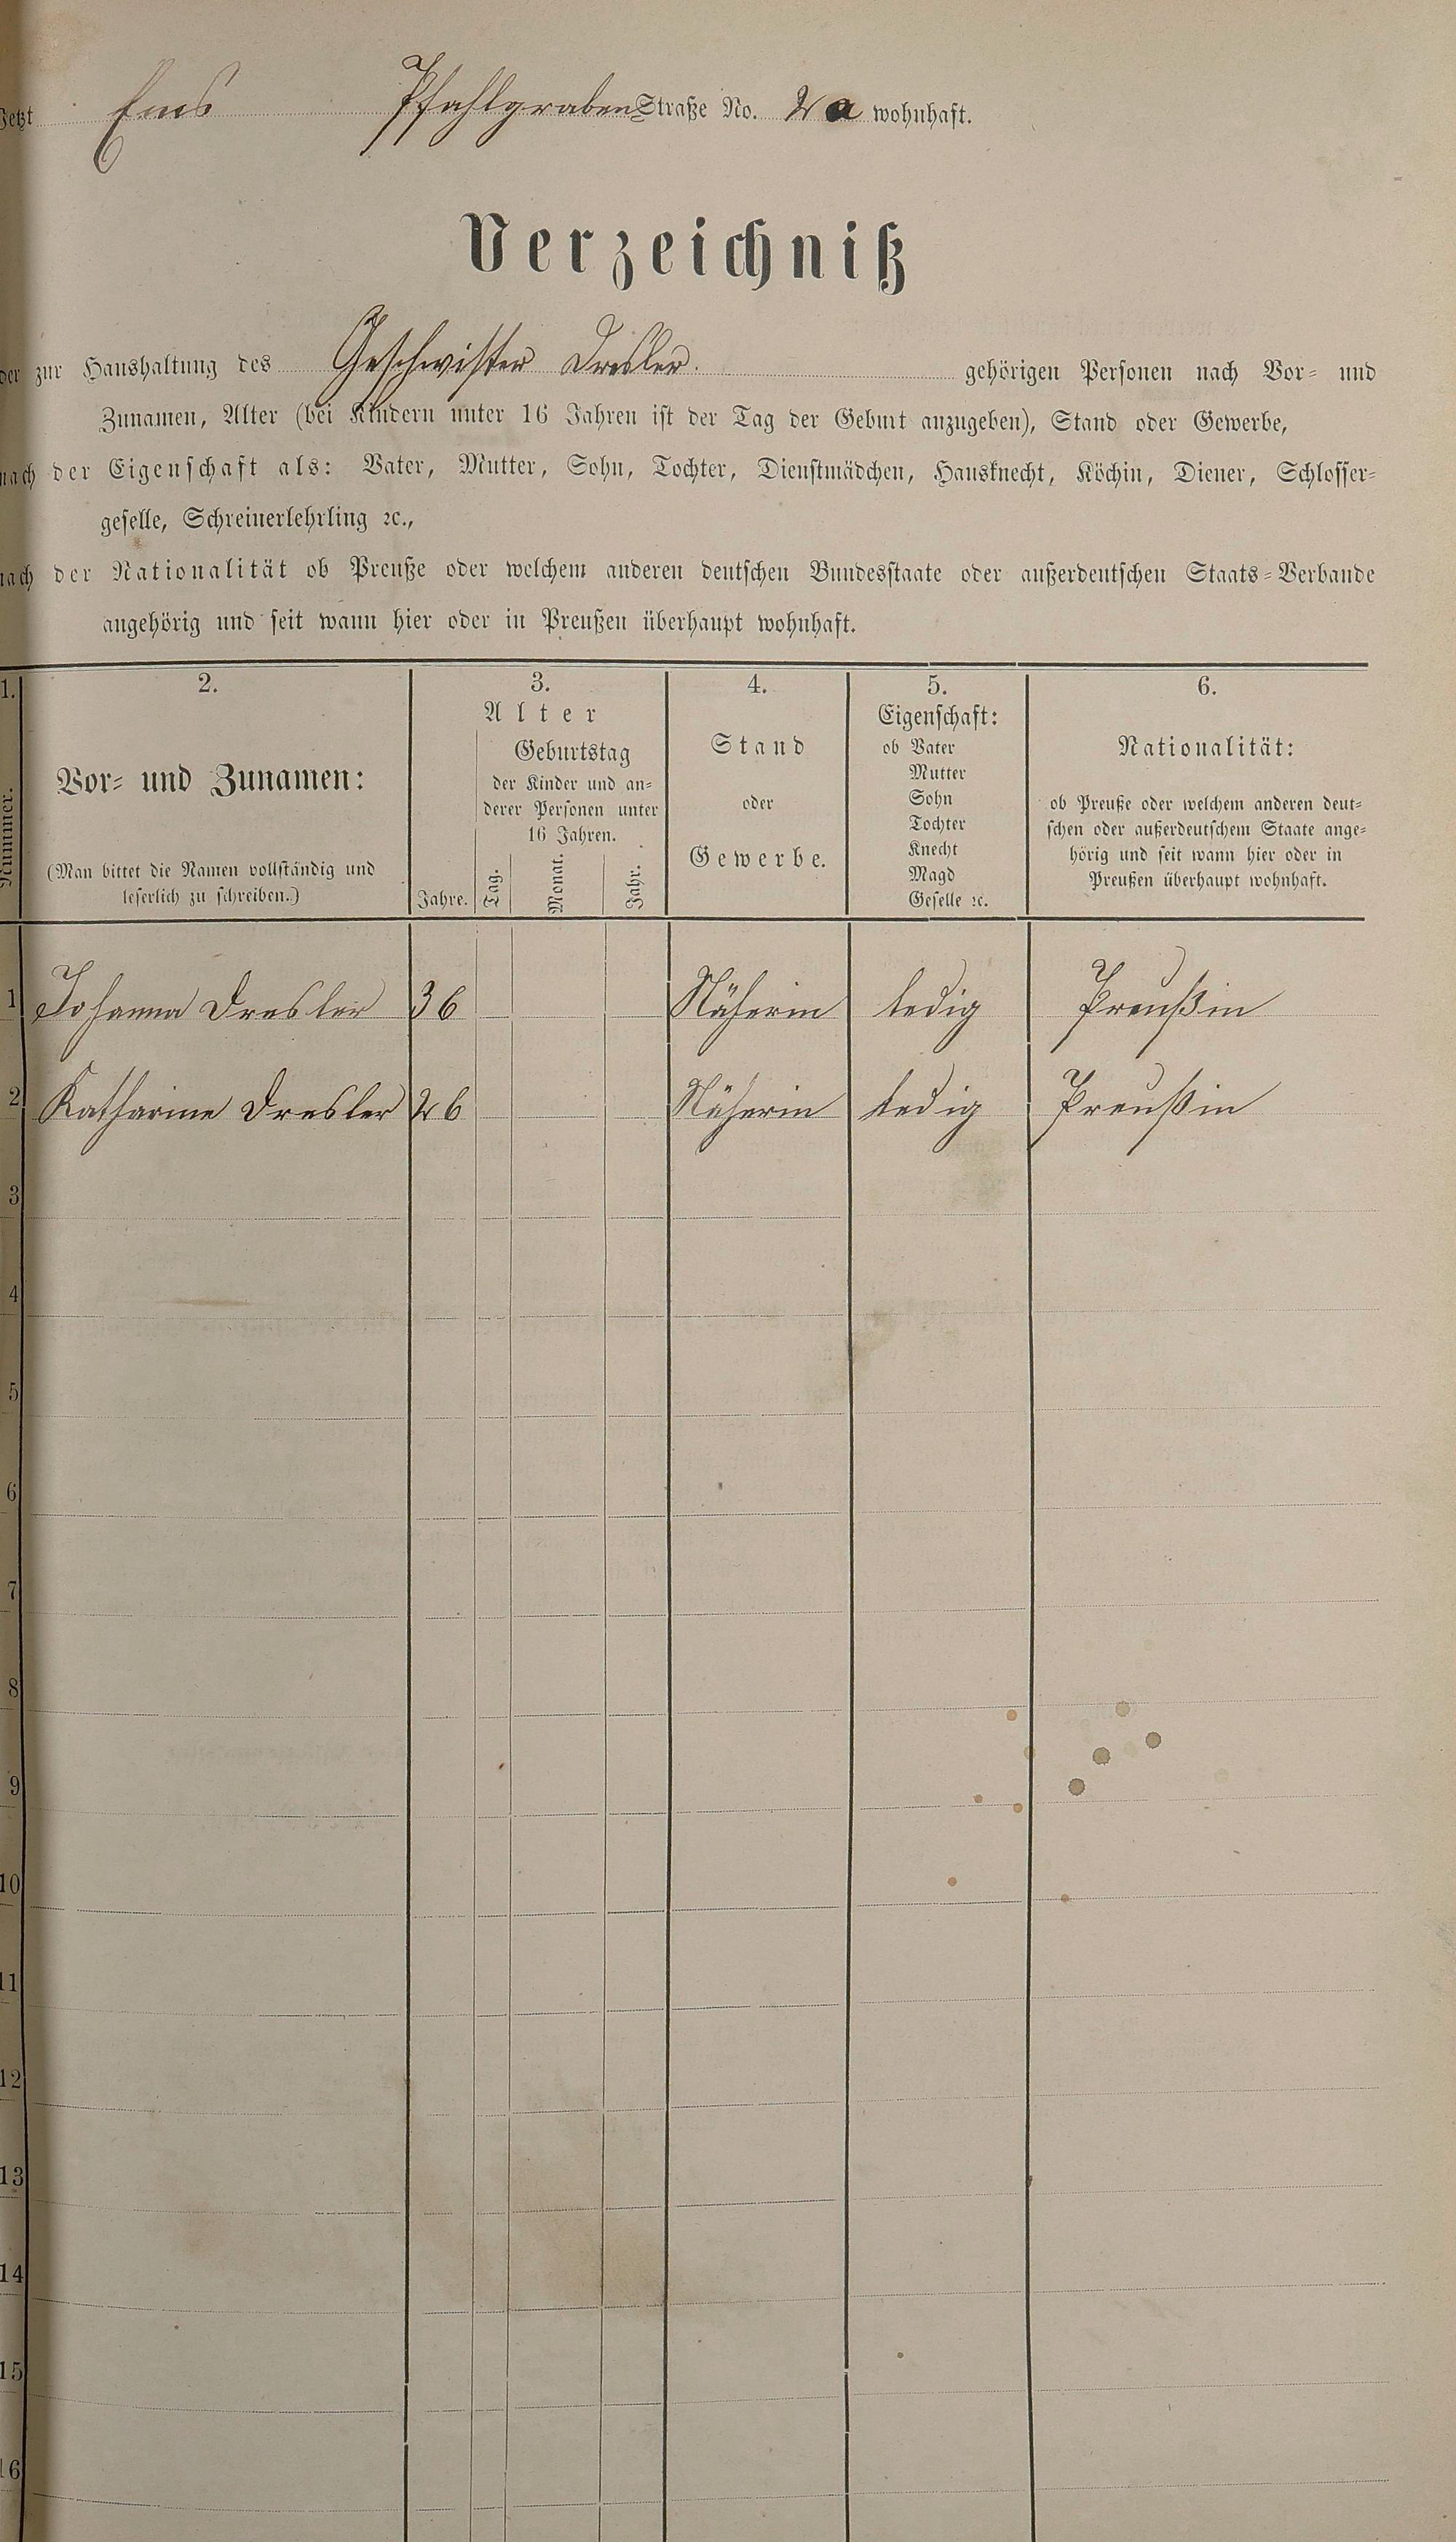 Jetzt Ems Pfahlgraben Straße No. 2 a wohnhaft.
Verzeichniß
der zur Haushaltung des Geschwister Dresler. gehörigen Personen nach Vor- und
Zunamen, Alter (bei Kindern unter 16 Jahren ist der Tag der Geburt anzugeben), Stand oder Gewerbe,
nach der Eigenschaft als: Vater, Mutter, Sohn, Tochter, Dienstmädchen, Hausknecht, Köchin, Diener, Schlosser-
geselle, Schreinerlehrling ꝛc.,
nach der Nationalität ob Preuße oder welchem anderen deutschen Bundesstaate oder außerdeutschen Staats-Verbande
angehörig und seit wann hier oder in Preußen überhaupt wohnhaft.
1. 2. 3. 4. 5. 6.
Nummer.
Vor- und Zunamen:
(Man bittet die Namen vollständig und
leserlich zu schreiben.)
Alter
Geburtstag
der Kinder und an-
derer Personen unter
16 Jahren.
Jahre. Tag. Monat. Jahr.
Stand
oder
Gewerbe.
Eigenschaft:
ob Vater
Mutter
Sohn
Tochter
Knecht
Magd
Geselle ꝛc.
Nationalität:
ob Preuße oder welchem anderen deut-
schen oder außerdeutschem Staate ange-
hörig und seit wann hier oder in
Preußen überhaupt wohnhaft.
1 Johanna Dresler 36 Näherin ledig Preußin
2 Katharine Dresler 26 Näherin ledig Preußin
3
4
5
6
7
8
9
10
11
12
13
14
15
16